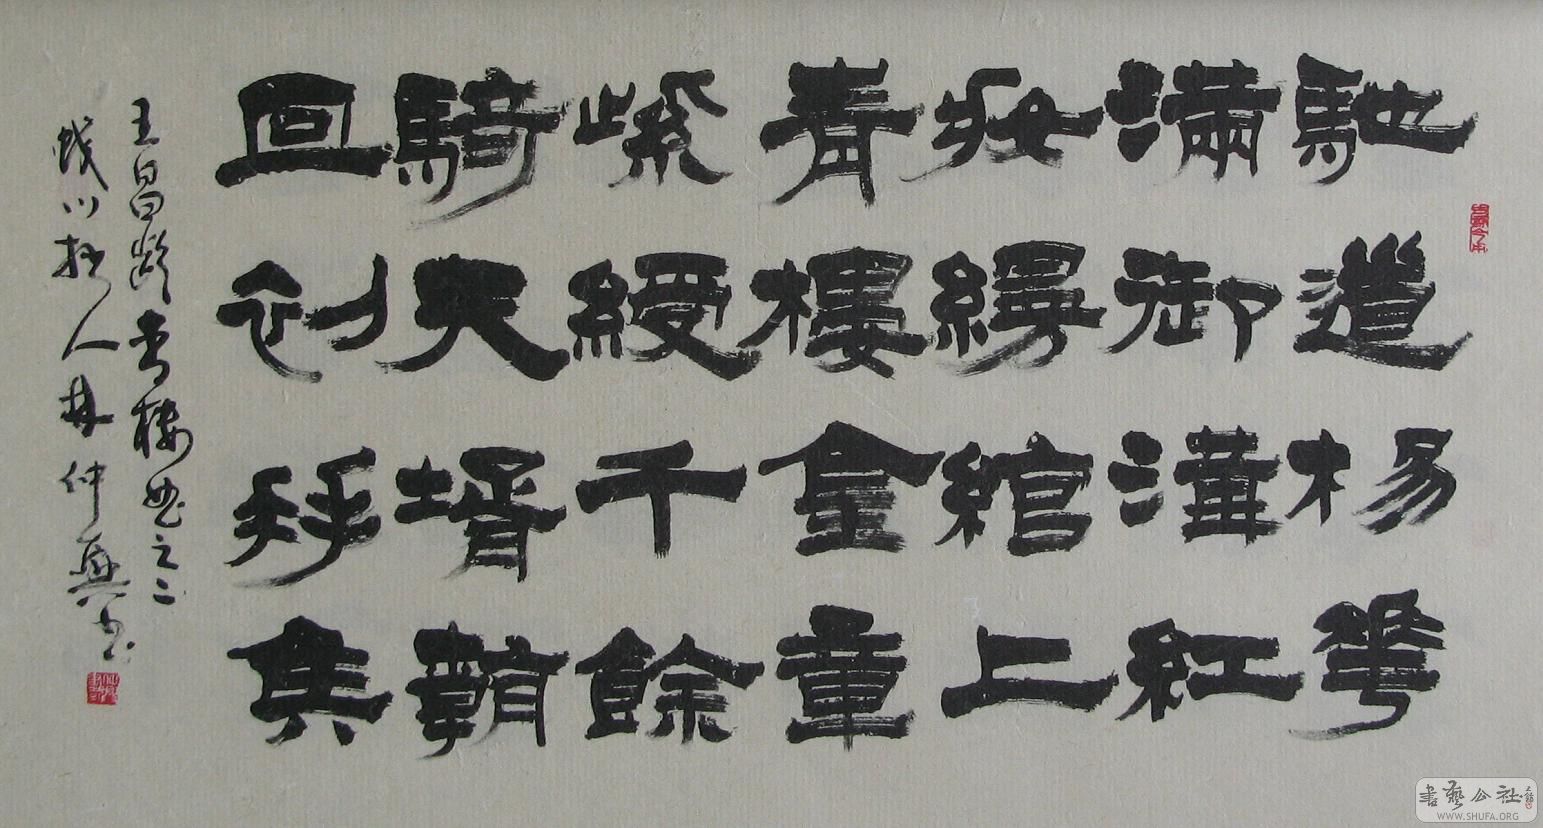 馳道楊華
滿御溝紅
妝縵綰上
青樓金章
紫綬千餘
騎夫壻朝
回初拜侯
王昌齡青樓曲之二
川拙人林仲興書
書藝公社
WWW.SHUFA.ORG